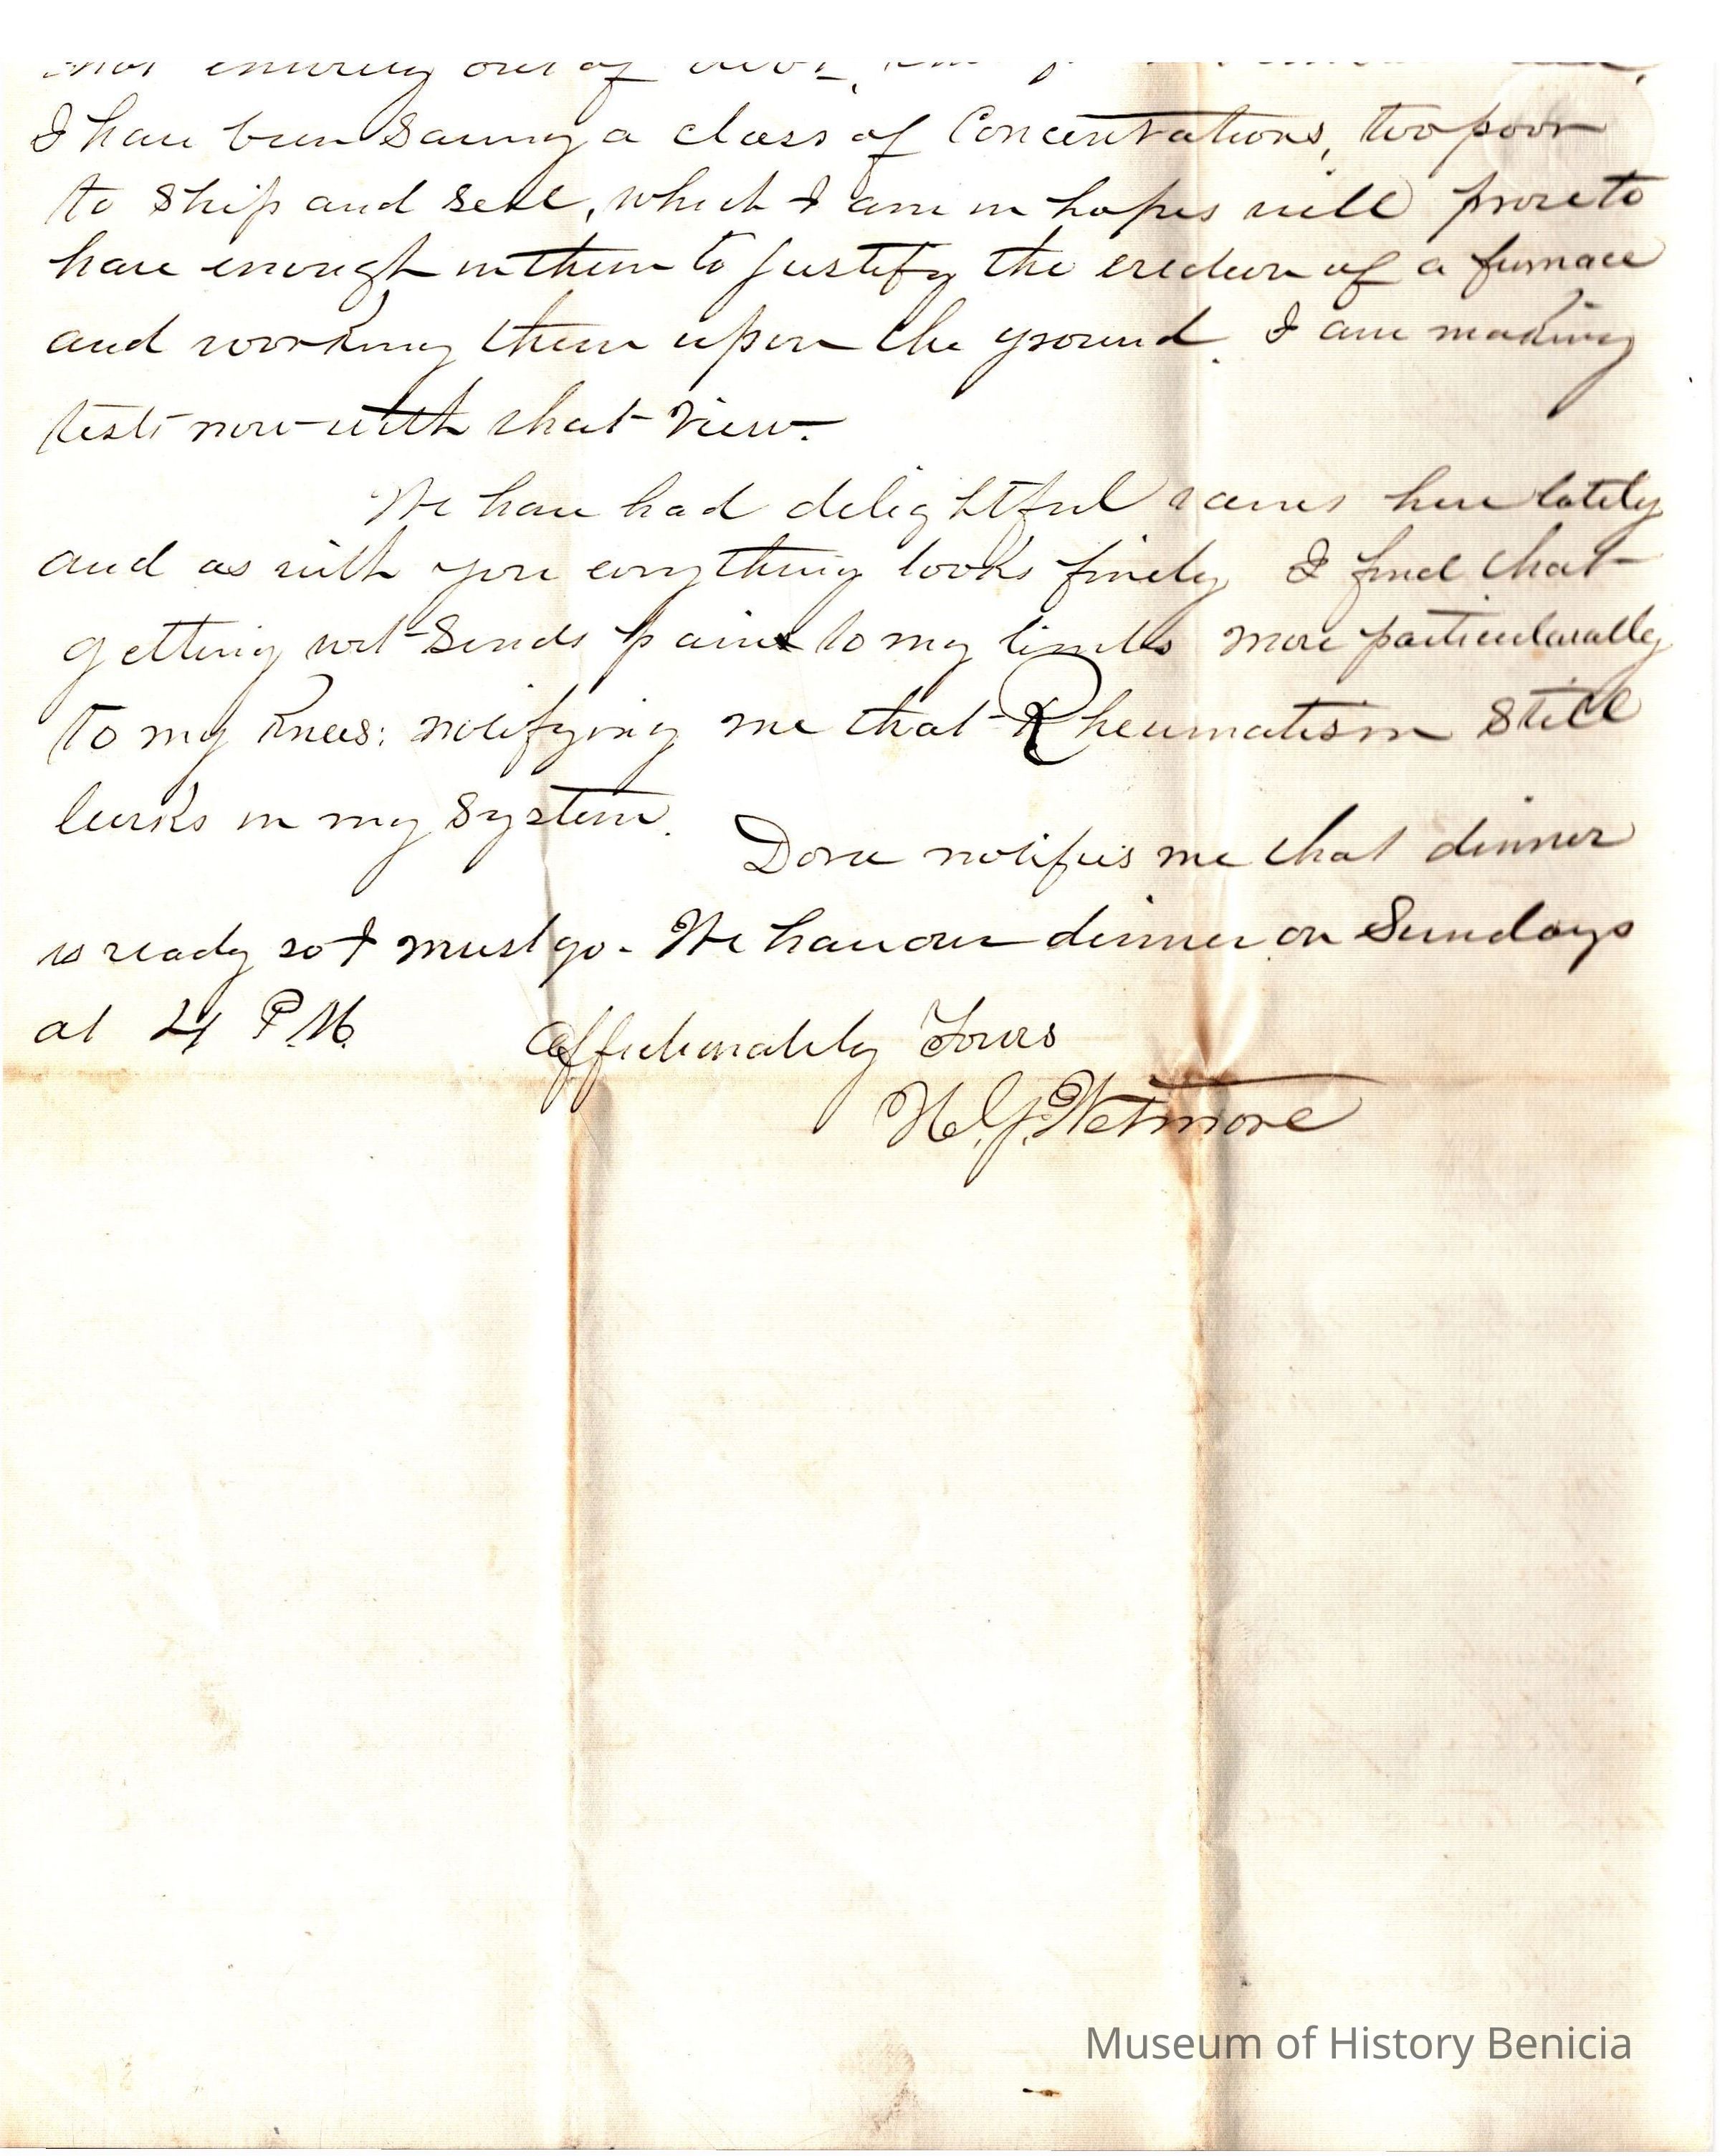 not entirely out of debt,
I have been saving a class of Concentrations, too poor
to ship and sell, which I am in hopes will prove to
have enough in them to justify the erection of a furnace
and working them upon the ground. I am making
tests now with that view.
We have had delightful rains here lately
and as with you everything looks finely I find that
getting wet sends pains to my limbs more particularally
to my knees: notifying me that Rheumatism still
lurks in my system.
Dora notifies me that dinner
is ready so I must go - We have our dinner on Sundays
at 4 P.M.
Affectionately Yours
Wetmore
Museum of History Benicia